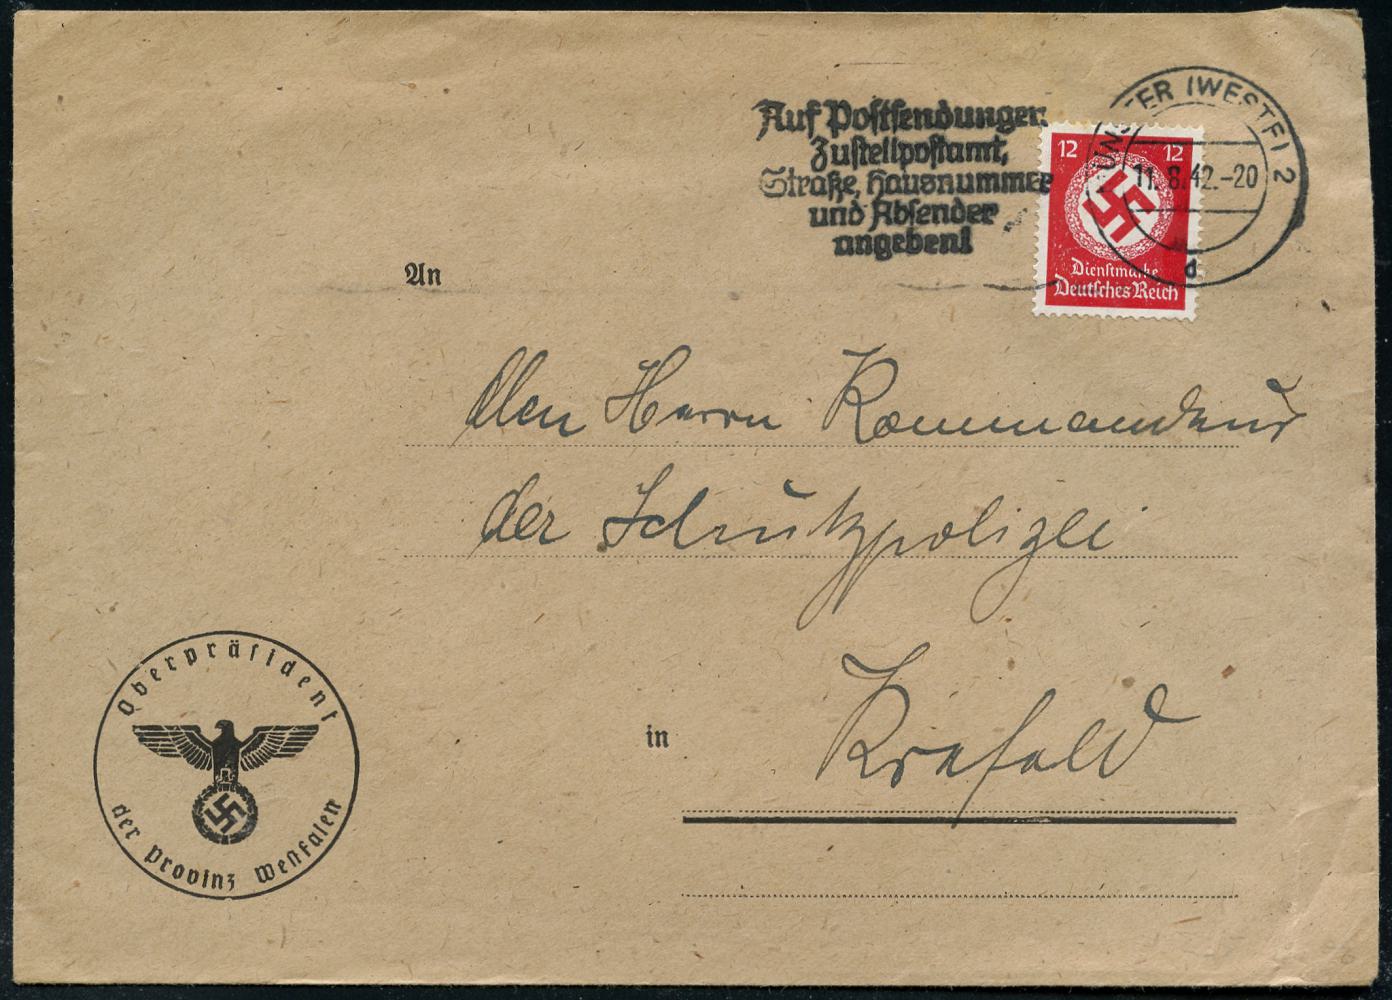 Auf Postsendungen
Zustellpostamt,
Straße, Hausnummer
und Absender
angeben!
MÜNSTER (WESTF) 2
11.8.42.-20
d
12 12
Dienstmarke
Deutsches Reich
An
den Herrn Kommandeur
der Schutzpolizei
in Krefeld
Oberpräsident
der Provinz Westfalen